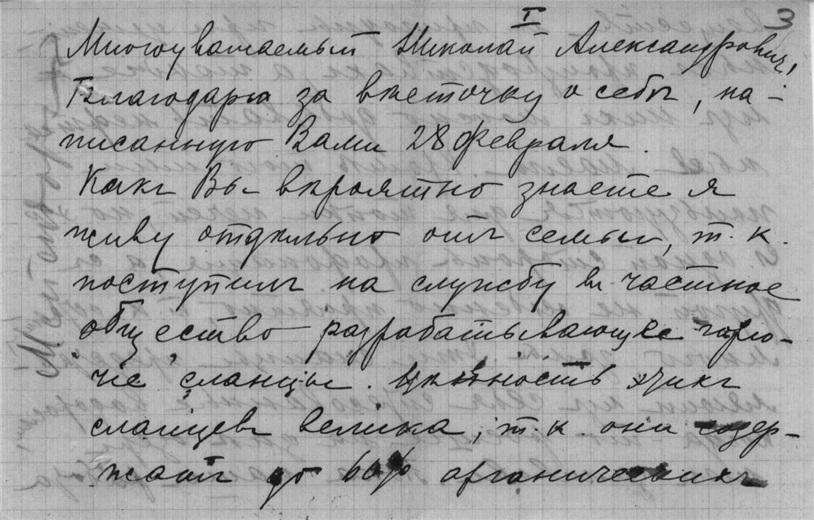 I 3
Многоуважаемый Николай Александровичъ,
Благодарю за весточку о себѣ, на-
писанную Вами 28 февраля.
Какъ Вы вѣроятно знаете я
живу отдѣльно отъ семьи, т.к.
поступилъ на службу въ частное
общество разрабатывающее горю-
чіе сланцы. Цѣнность этихъ
сланцевъ велика, т.к. они содер-
жатъ до 60% органическихъ